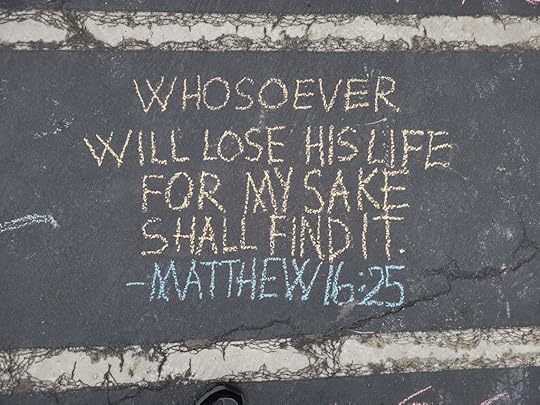 WHOSOEVER
WILL LOSE HIS LIFE
FOR MY SAKE
SHALL FIND IT.
-MATTHEW 16:25